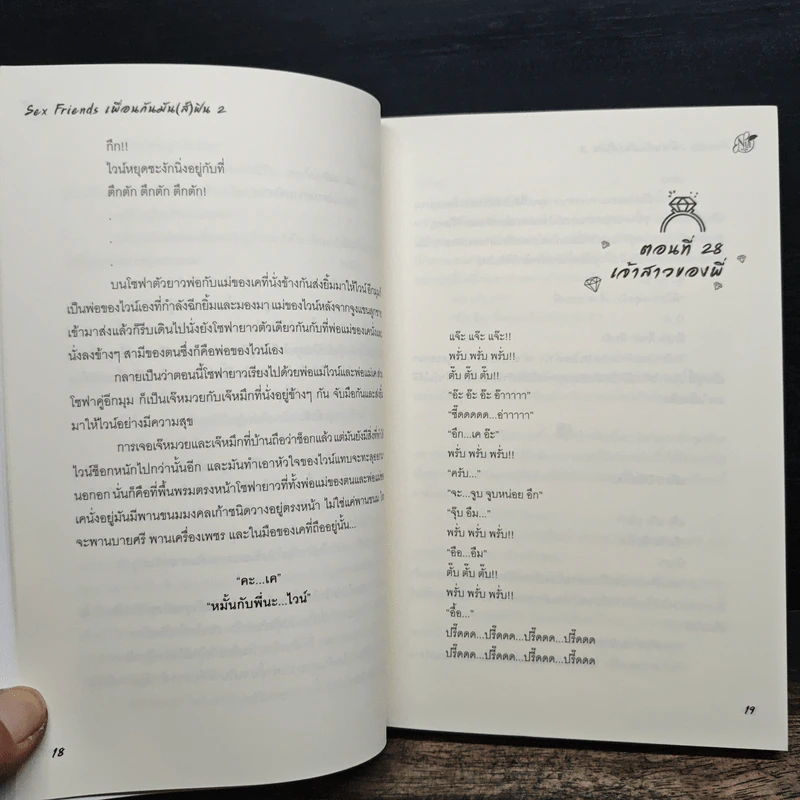 Sex Friends เพื่อนกันมัน(ส์)ฟิน 2
กึก!!
ไวน์หยุดชะงักนิ่งอยู่กับที่
ตึกตัก ตึกตัก ตึกตัก!
.
.
.
บนโซฟาตัวยาวพ่อกับแม่ของเคที่นั่งข้างกันส่งยิ้มมาให้ไวน์ อีกมุมก็
เป็นพ่อของไวน์เองที่กำลังฉีกยิ้มและมองมา แม่ของไวน์หลังจากจูงแขนลูกชาย
เข้ามาส่งแล้วก็รีบเดินไปนั่งยังโซฟายาวตัวเดียวกันกับที่พ่อแม่ของเคนั่ง
นั่งลงข้างๆ สามีของตนซึ่งก็คือพ่อของไวน์เอง
กลายเป็นว่าตอนนี้โซฟายาวเรียงไปด้วยพ่อแม่ไวน์และพ่อแม่เค ส่วน
โซฟาคู่อีกมุม ก็เป็นเจ๊หมวยกับเจ๊หมึกที่นั่งอยู่ข้างๆ กัน จับมือกันและส่งยิ้ม
มาให้ไวน์อย่างมีความสุข
การเจอเจ๊หมวยและเจ๊หมึกที่บ้านถือว่าช็อกแล้ว แต่มันยังมีสิ่งที่ทำให้
ไวน์ช็อกหนักไปกว่านั้นอีก และมันทำเอาหัวใจของไวน์แทบจะทะลุออกมา
นอกอก นั่นก็คือที่พื้นพรมตรงหน้าโซฟายาวที่ทั้งพ่อแม่ของตนและพ่อแม่ของ
เคนั่งอยู่มันมีพานขนมมงคลเก้าชนิดวางอยู่ตรงหน้า ไม่ใช่แค่พานขนม
จะพานบายศรี พานเครื่องเพชร และในมือของเคที่ถืออยู่นั้น...
“คะ...เค”
“หมั้นกับพี่นะ...ไวน์”
18
ตอนที่ 28
เจ้าสาวของพี่
แจ๊ะ แจ๊ะ แจ๊ะ!!
พรั่บ พรั่บ พรั่บ!!
ตั๊บ ตั๊บ ตั๊บ!!
“อ๊ะ อ๊ะ อ๊ะ อ๊าาาาา”
“ซี๊ดดดดด...อ่าาาาา”
“อึก...เค อ๊ะ”
พรั่บ พรั่บ พรั่บ!!
“ครับ...”
“จะ...จูบ จูบหน่อย อึก”
“จุ๊บ อืม...”
พรั่บ พรั่บ พรั่บ!!
“อือ...อืม”
ตั๊บ ตั๊บ ตั๊บ!!
พรั่บ พรั่บ พรั่บ!!
“อื้อ...”
ปรี๊ดดด...ปรี๊ดดด...ปรี๊ดดด...ปรี๊ดดด
ปรี๊ดดด...ปรี๊ดดด...ปรี๊ดดด...ปรี๊ดดด
19